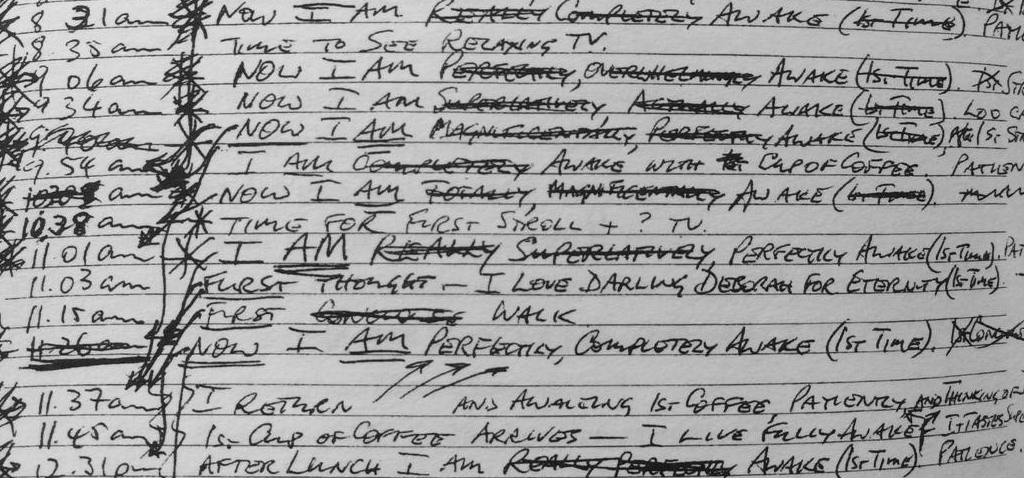 8 31 am NOW I AM REALLY COMPLETELY AWAKE (1ST TIME).
8.35 am TIME TO SEE RELAXING TV.
9 06 am NOW I AM PERFECTLY, OVERWHELMINGLY AWAKE (1ST TIME).
9 34 am NOW I AM SUPERLATIVELY, ACTUALLY AWAKE (1ST TIME).
NOW I AM MAGNIFICENTLY, PERFECTLY AWAKE (1ST TIME),
9.54 am I AM COMPLETELY AWAKE WITH CUP OF COFFEE. PATIEN
am NOW I AM TOTALLY, MAGNIFICENTLY AWAKE (1ST TIME).
10.38 am TIME FOR FIRST STROLL + ? TV.
11.01 am I AM REALLY SUPERLATIVELY, PERFECTLY AWAKE (1ST TIME). PAT
11.03 am FIRST THOUGHT – I LOVE DARLING DEBORAH FOR ETERNITY (1ST TIME).
11.15 am FIRST WALK
11.26 am NOW I AM PERFECTLY, COMPLETELY AWAKE (1ST TIME).
11.37 am I RETURN AND AWAITING 1ST COFFEE, PATIENTLY AND THINKING OF
11.45 am 1ST CUP OF COFFEE ARRIVES — I LIVE FULLY AWAKE IT TASTES
12.31 pm AFTER LUNCH I AM REALLY PERFECTLY AWAKE (1ST TIME) PATIENCE.